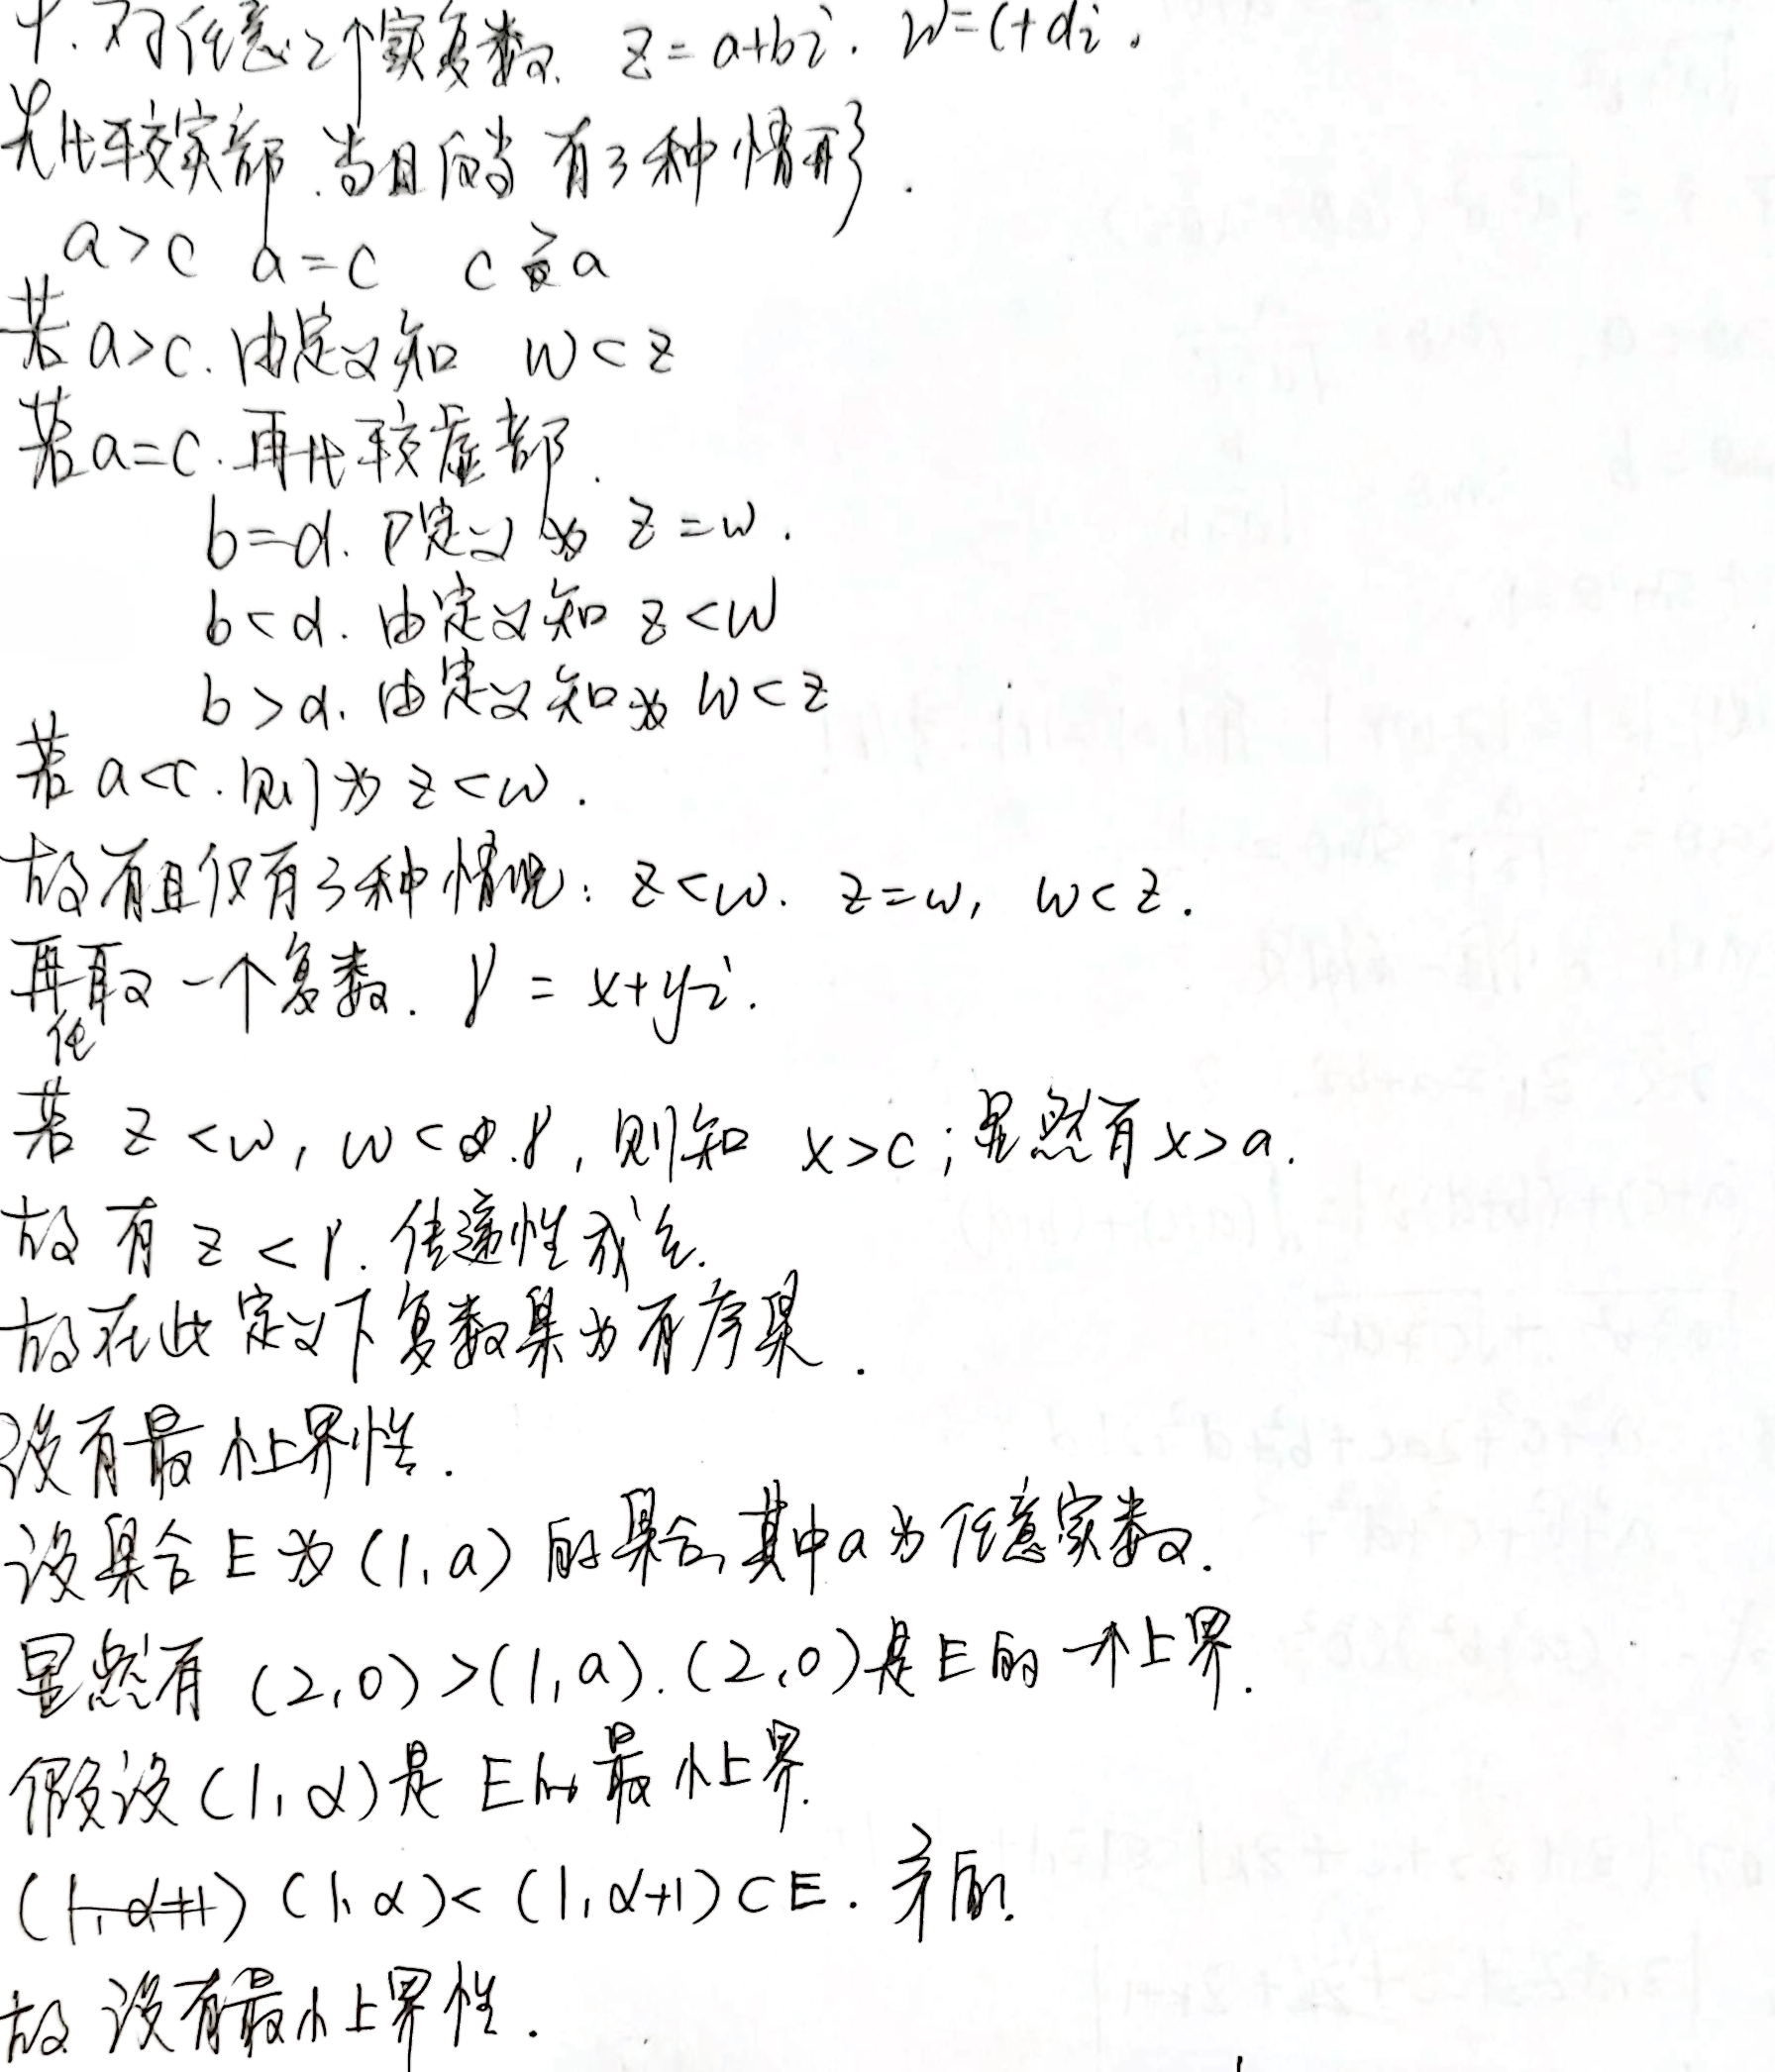 9. 对任意2个复数. z=a+bi. w=c+di.
先比较实部.当且仅当有3种情形.
a>c a=c c>a
若a>c.由定义知 w<z
若a=c.再比较虚部.
b=d. 定义为 z=w.
b<d. 由定义知 z<w
b>d. 由定义知为 w<z
若 a<c.则为 z<w.
故有且仅有3种情况: z<w. z=w, w<z.
再任取一个复数. γ=x+yi.
若 z<w, w<γ, 则知 x>c;显然有x>a.
故有 z<γ.传递性成立.
故在此定义下复数集为有序集.
没有最小上界性.
设集合E为(1,a)的集合,其中a为任意实数.
显然有 (2,0)>(1,a).(2,0)是E的一个上界.
假设(1,α)是E的最小上界.
(1,α)<(1,α+1)⊂E.矛盾.
故没有最小上界性.